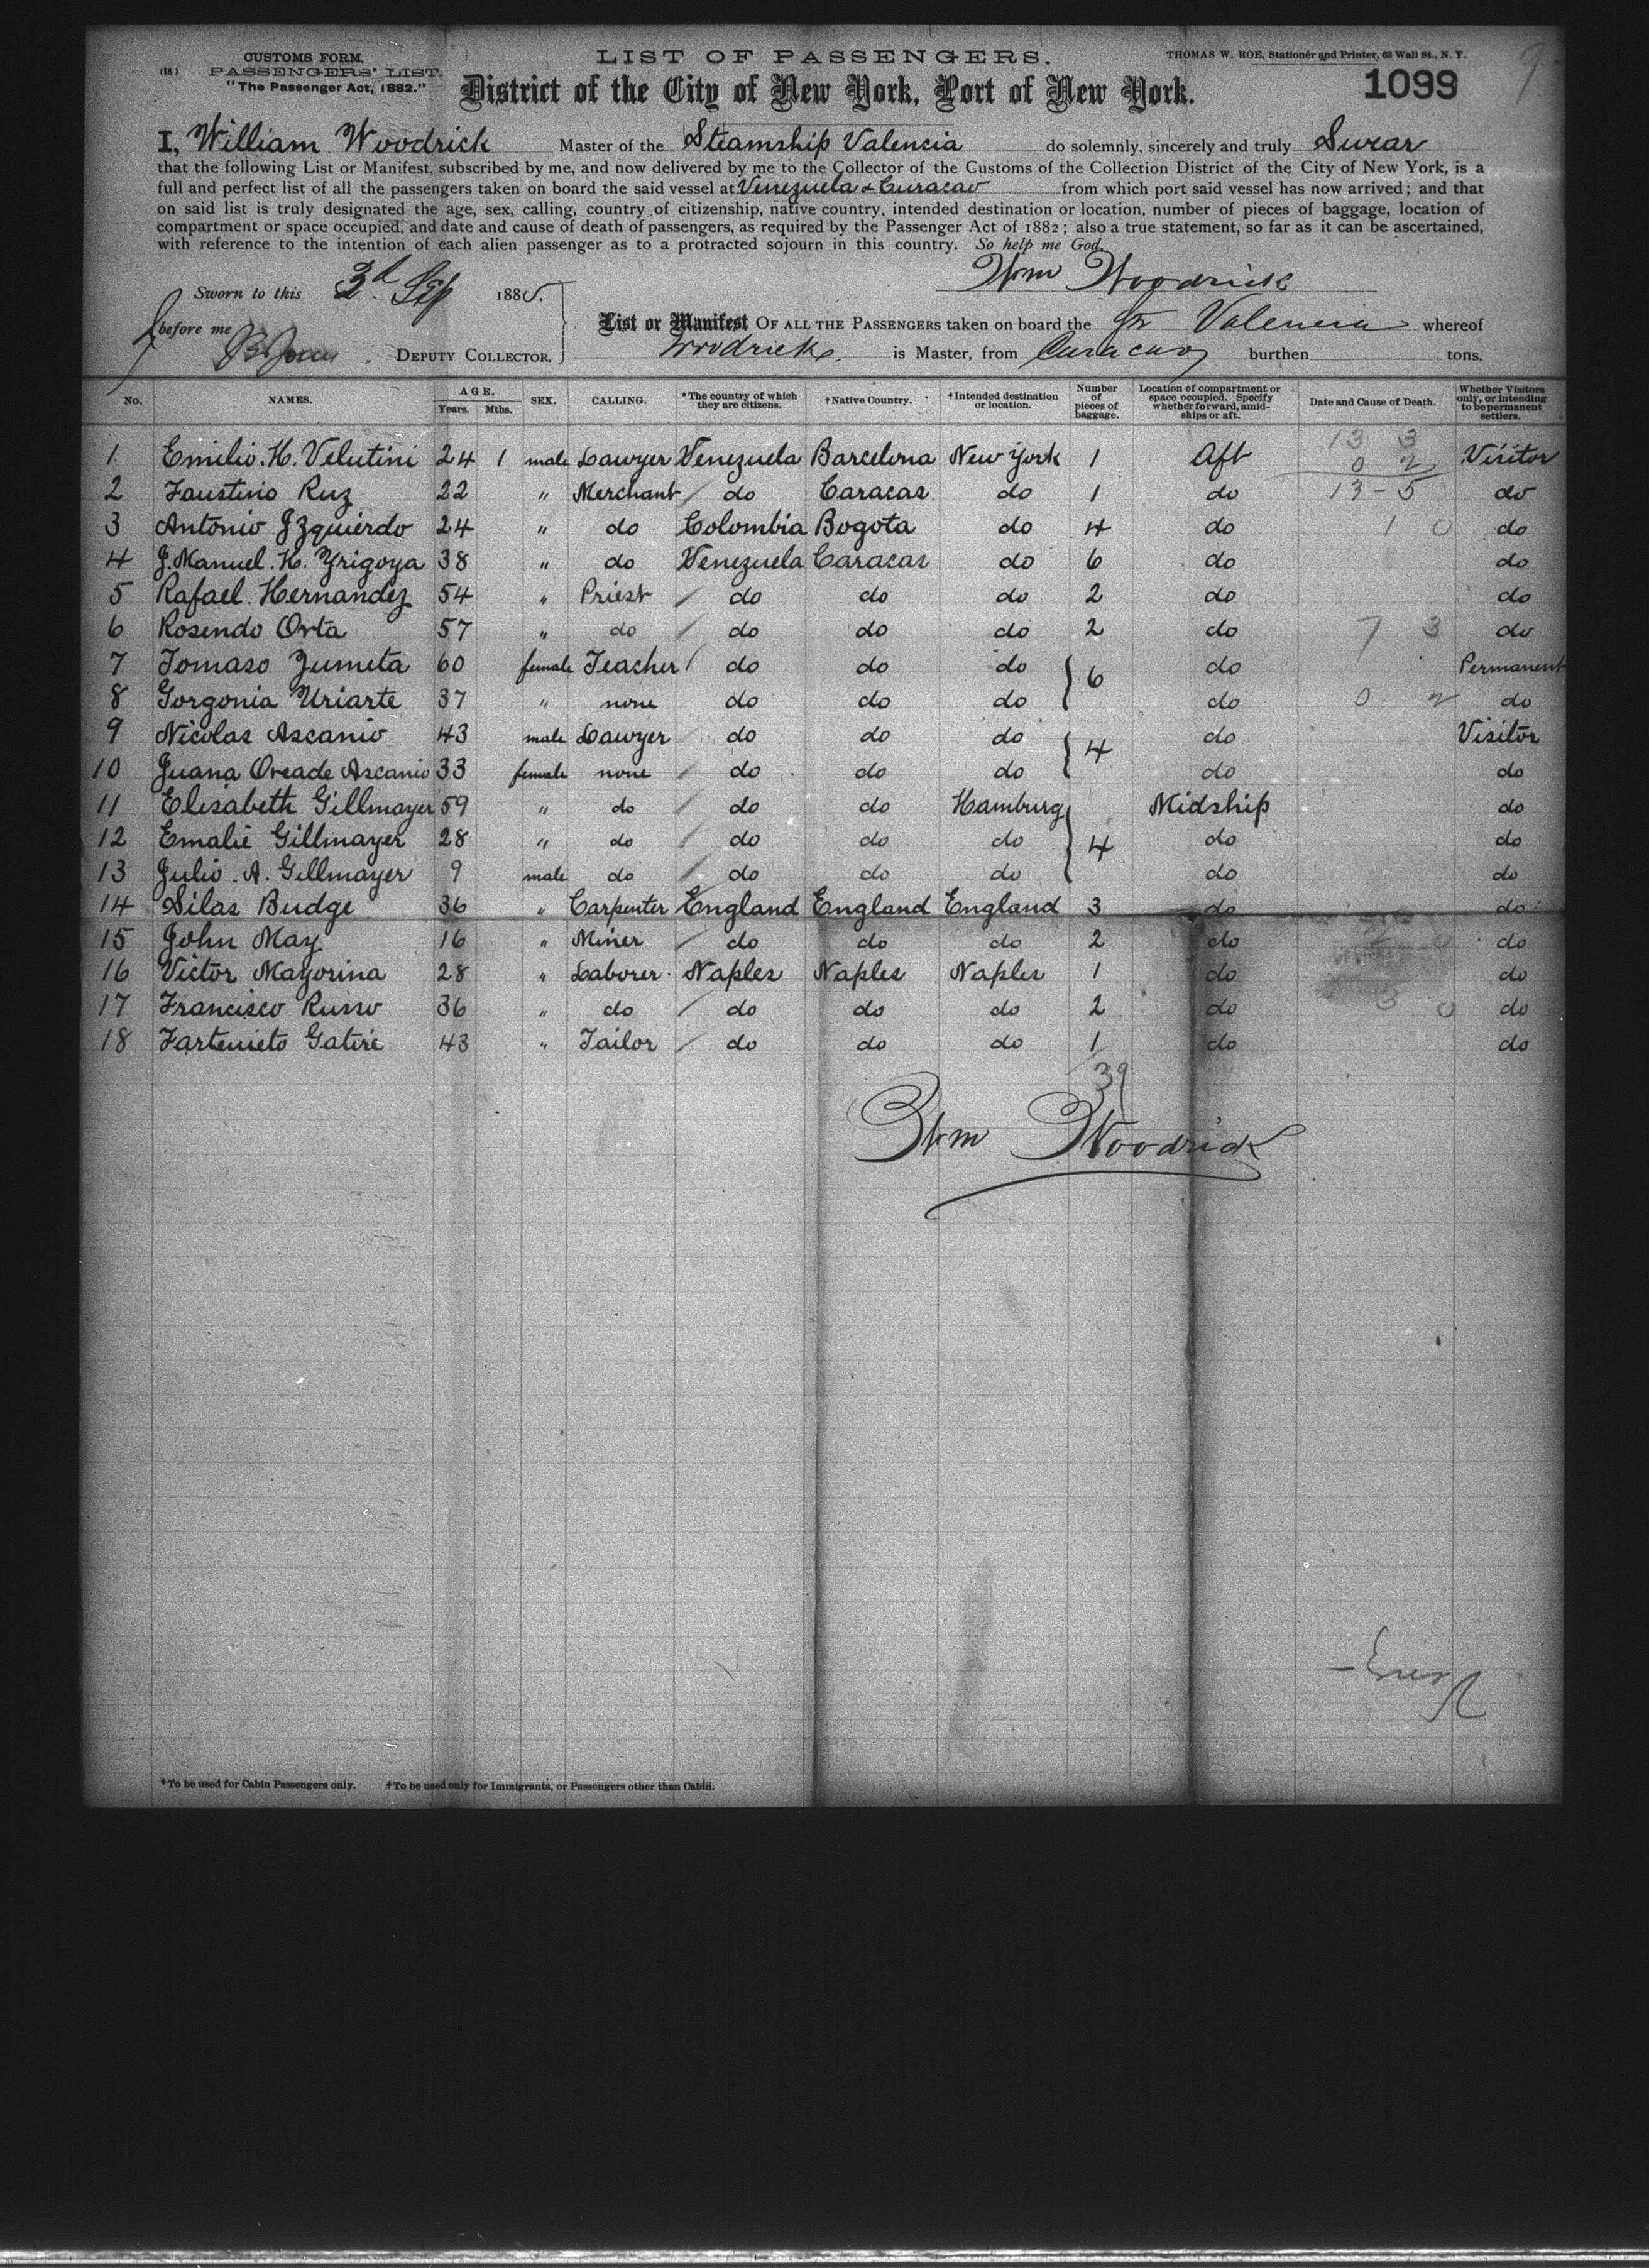 CUSTOMS FORM.
(18) PASSENGERS' LIST.
"The Passenger Act, 1882."
LIST OF PASSENGERS.
THOMAS W. ROE, Stationer and Printer, 63 Wall St., N. Y.
9
District of the City of New York, Port of New York.
1099
I, William Woodrick Master of the Steamship Valencia do solemnly, sincerely and truly Swear
that the following List or Manifest, subscribed by me, and now delivered by me to the Collector of the Customs of the Collection District of the City of New York, is a
full and perfect list of all the passengers taken on board the said vessel at Venezuela & Curacao from which port said vessel has now arrived; and that
on said list is truly designated the age, sex, calling, country of citizenship, native country, intended destination or location, number of pieces of baggage, location of
compartment or space occupied, and date and cause of death of passengers, as required by the Passenger Act of 1882; also a true statement, so far as it can be ascertained,
with reference to the intention of each alien passenger as to a protracted sojourn in this country. So help me God.
Wm Woodrick
Sworn to this 3d Sep 1885.
before me DEPUTY COLLECTOR.
List or Manifest OF ALL THE PASSENGERS taken on board the Str Valencia whereof
Woodrick is Master, from Curacao burthen tons.
No. NAMES. AGE. Years. Mths. SEX. CALLING. *The country of which they are citizens. †Native Country. †Intended destination or location. Number of pieces of baggage. Location of compartment or space occupied. Specify whether forward, amidships or aft. Date and Cause of Death. Whether Visitors only, or intending to be permanent settlers.
1 Emilio. H. Velutini 24 1 male Lawyer Venezuela Barcelona New York 1 Aft 13 3 0 2 Visitor
2 Faustino Ruz 22 " Merchant do Caracas do 1 do 13-5 do
3 Antonio Izquierdo 24 " do Colombia Bogota do 4 do 1 0 do
4 J. Manuel. H. Yrigoya 38 " do Venezuela Caracas do 6 do do
5 Rafael. Hernandez 54 " Priest do do do 2 do do
6 Rosendo Orta 57 " do do do do 2 do 7 3 do
7 Tomaso Zumeta 60 female Teacher do do do 6 do Permanent
8 Gorgonia Uriarte 37 " none do do do do 0 2 do
9 Nicolas Ascanio 43 male Lawyer do do do 4 do Visitor
10 Juana Oreade Ascanio 33 female none do do do do do
11 Elisabeth Gillmayer 59 " do do do Hamburg Midship do
12 Emalie Gillmayer 28 " do do do do 4 do do
13 Julio. A. Gillmayer 9 male do do do do do do
14 Silas Budge 36 " Carpenter England England England 3 do do
15 John May 16 " Miner do do do 2 do do
16 Victor Mayorina 28 " Laborer Naples Naples Naples 1 do do
17 Francisco Russo 36 " do do do do 2 do 3 0 do
18 Fartenieto Gatire 43 " Tailor do do do 1 do do
39
Wm Woodrick
*To be used for Cabin Passengers only. †To be used only for Immigrants, or Passengers other than Cabin.